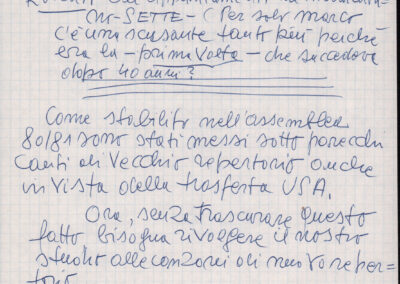 no-SETTE-(Per solo marco
c'è una scusante tanto più perché
era la-prima volta-che succedeva
dopo 40 anni?
Come stabilito nell'assemblea
80/81 sono stati messi sotto parecchi
Canti di Vecchio repertorio anche
in vista della trasferta USA.
Ora, senza trascurare questo
fatto bisogna rivolgere il nostro
studio alle canzoni di nuovo reper=
torio